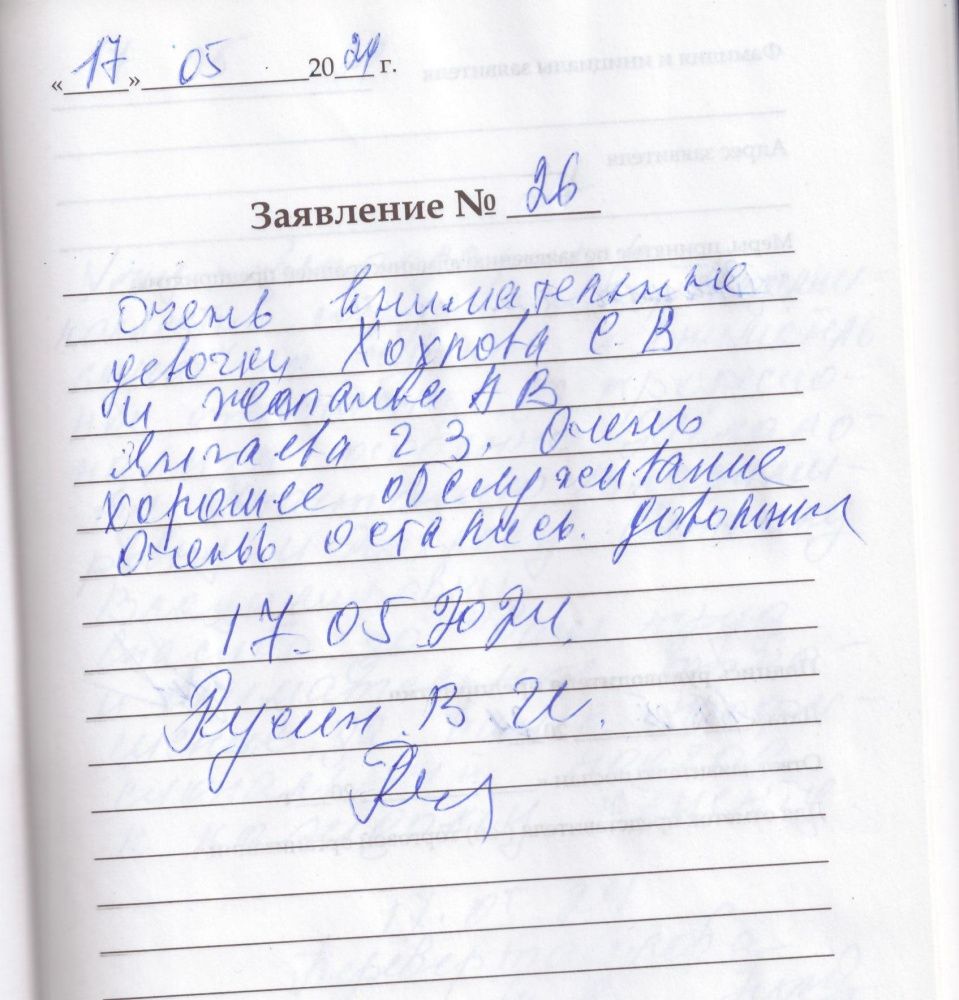 «17» 05 2024 г.
Заявление № 26
Очень внимательные
девочки Хохрова С. В
и А В
Очень
хорошее обслуживание
Очень остались. довольны
17.05.2024
Русин. В. И.